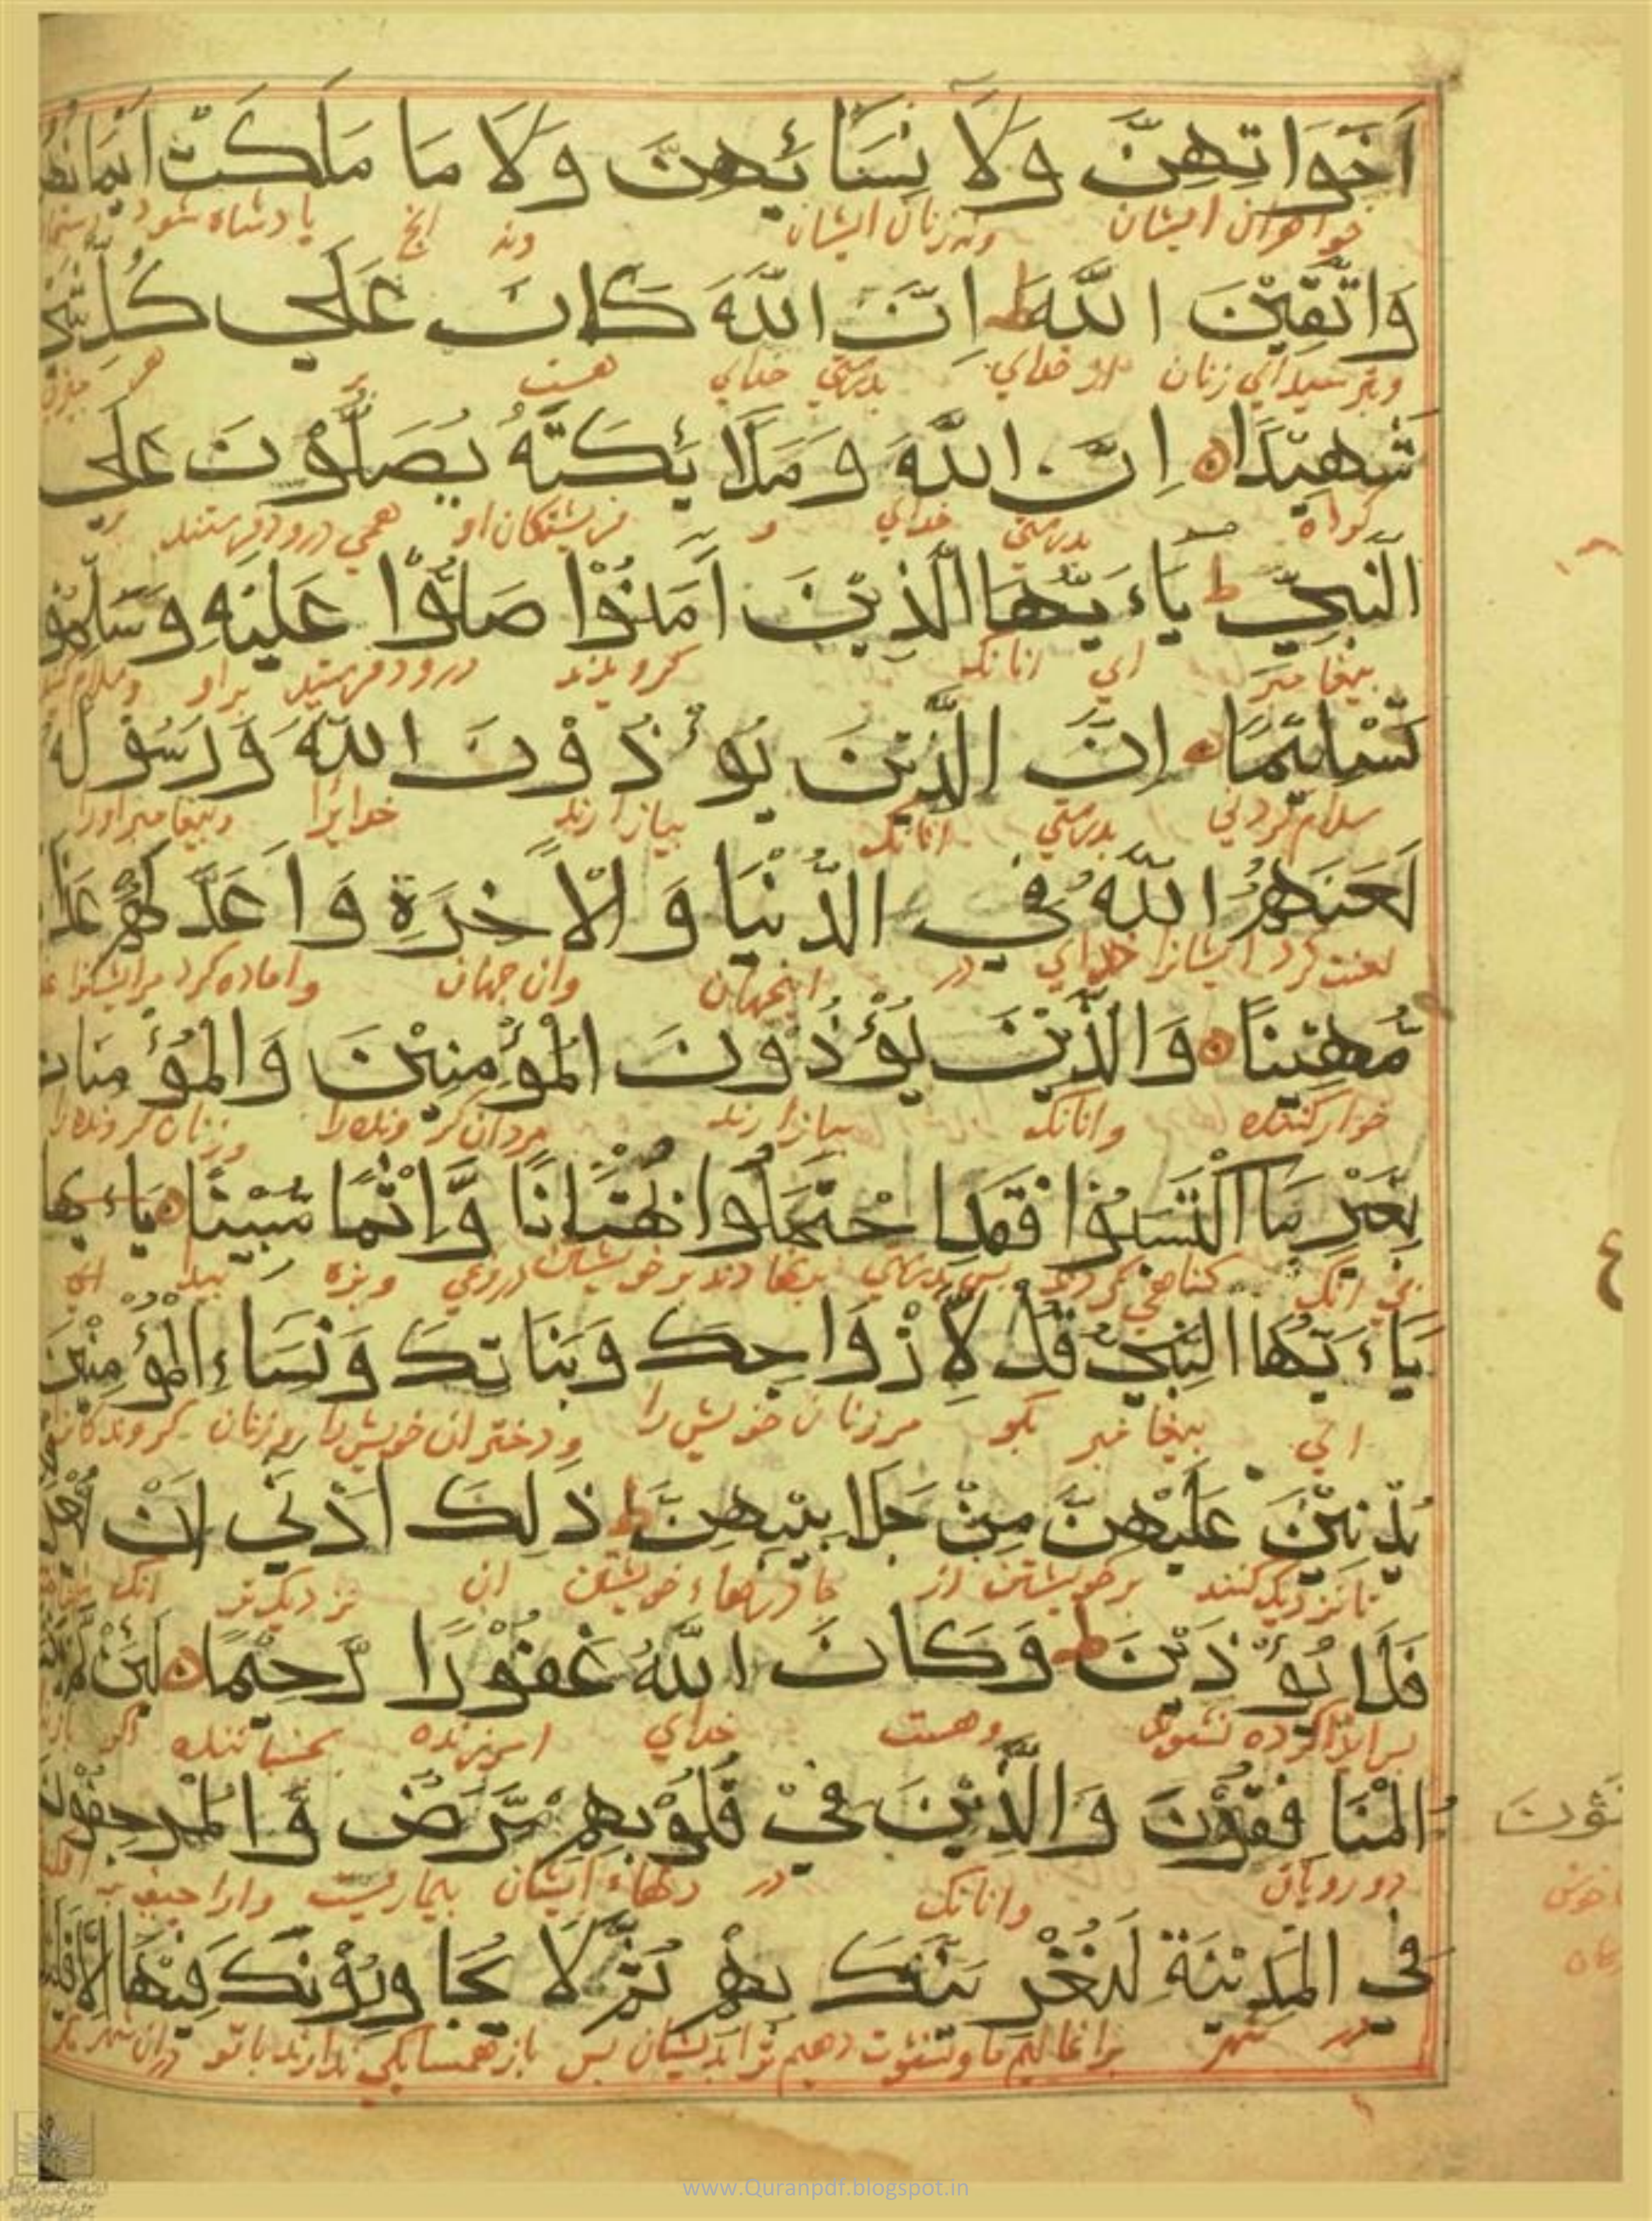 اَخَوَاتِهِنَّ وَلَا نِسَائِهِنَّ وَلَا مَا مَلَكَتْ اَيْمَانُهُنَّ
خواهران ایشان ونه زنان ایشان ونه انچ پادشاه شود
وَاتَّقِيْنَ اللّٰهَ ط اِنَّ اللّٰهَ كَانَ عَلٰي كُلِّ شَيْ
وبترسید ای زنان از خدای بدرستی خدای هست بر هر چیزی
شَهِيْدًا اِنَّ اللّٰهَ وَمَلَائِكَتَهُ يُصَلُّوْنَ عَلَي
گواه بدرستی خدای و فریشتکان او همی درود فرستند بر
النَّبِيِّ ط يَاءَيُّهَا الَّذِيْنَ اٰمَنُوْا صَلُّوْا عَلَيْهِ وَسَلِّمُوْا
پیغامبر ای انانک کرویدند درود فرستید براو وسلام کنید
تَسْلِيْمًا اِنَّ الَّذِيْنَ يُوْءذُوْنَ اللّٰهَ وَرَسُوْلَهُ
سلام کردنی بدرستی انانک بیازارند خدایرا وپیغامبر اورا
لَعَنَهُمُ اللّٰهُ فِي الدُّنْيَا وَالْاٰخِرَةِ وَاَعَدَّ لَهُمْ عَذَابًا
لعنت کرد ایشانرا خدای در اینجهان وان جهان واماده کرد مرایشانرا
مُّهِيْنًا وَالَّذِيْنَ يُؤْذُوْنَ الْمُؤْمِنِيْنَ وَالْمُؤْمِنَاتِ
خوار کننده وانانک بیازارند مردان کرونده را وزنان کرونده را
بِغَيْرِ مَا اكْتَسَبُوْا فَقَدِ احْتَمَلُوْا بُهْتَانًا وَّاِثْمًا مُّبِيْنًا يَاءَيُّهَا
بی انک کناهی کردند پس بدرستی برخویشتن دروغی وبزه ای
يَاءَيُّهَا النَّبِيُّ قُلْ لِّاَزْوَاجِكَ وَبَنَاتِكَ وَنِسَاءِ الْمُؤْمِنِيْنَ
ای پیغامبر بکو مرزنان خویش را ودختران خویش را وزنان کروندکان
يُدْنِيْنَ عَلَيْهِنَّ مِنْ جَلَابِيْبِهِنَّ ط ذٰلِكَ اَدْنٰي اَنْ
تا نزدیک کنند برخویشتن از چادرهاء خویشتن ان نزدیکتر انک
فَلَا يُؤْذَيْنَ ط وَكَانَ اللّٰهُ غَفُوْرًا رَّحِيْمًا لَئِنْ لَّمْ
وهست خدای امرزنده بخشاینده اکر
الْمُنَافِقُوْنَ وَالَّذِيْنَ فِيْ قُلُوْبِهِمْ مَّرَضٌ وَّالْمُرْجِفُوْنَ
دورویان وانانک در دلهاء ایشان بیماریست
فِي الْمَدِيْنَةِ لَنُغْرِيَنَّكَ بِهِمْ ثُمَّ لَا يُجَاوِرُوْنَكَ فِيْهَا اِلَّا قَلِيْلًا
در شهر پس باز همسایکی ندارند باتو دران شهر
ع
www.Quranpdf.blogspot.in